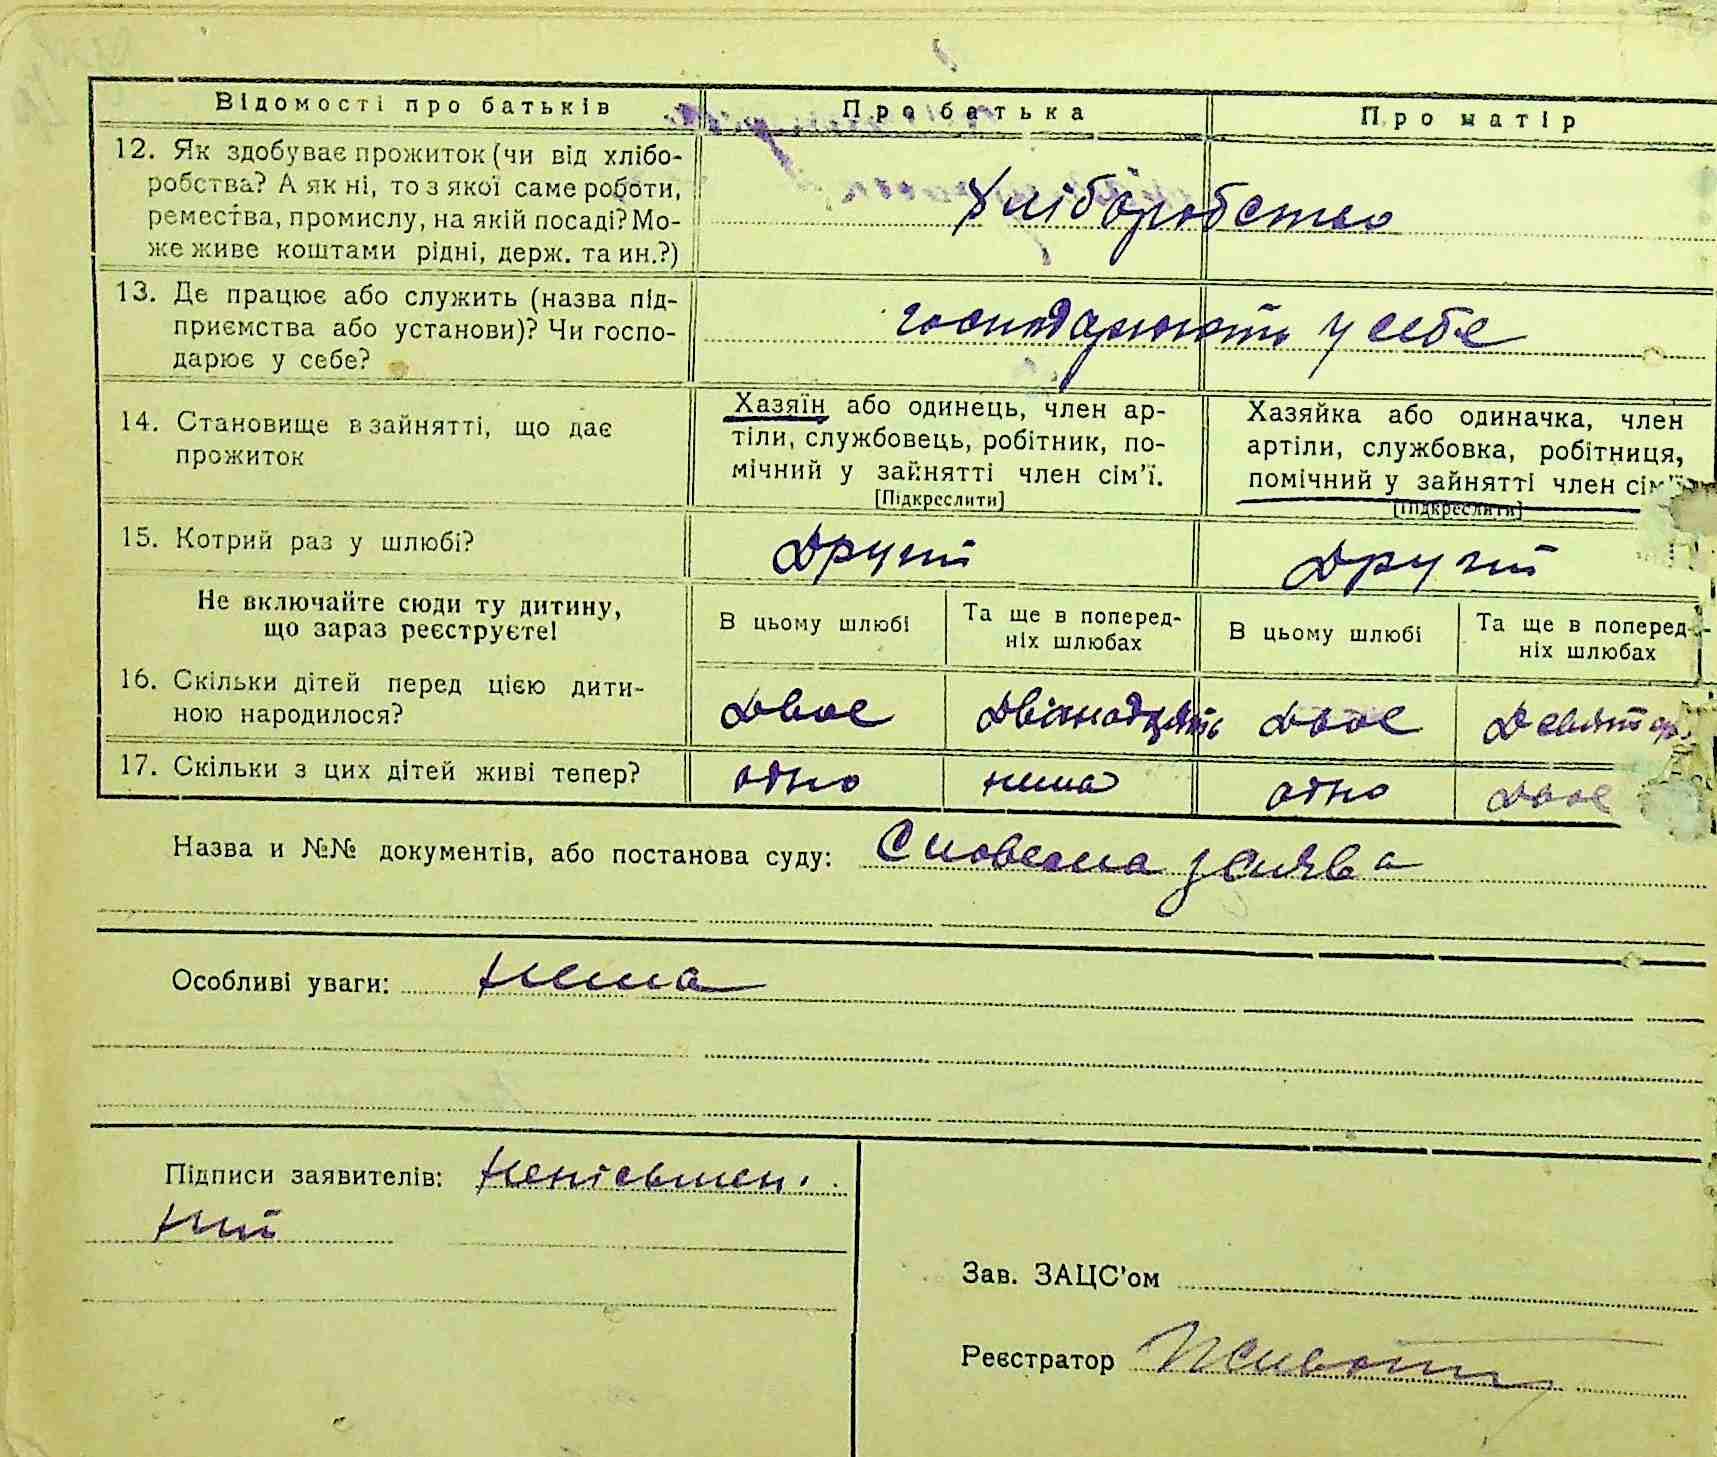 Відомості про батьків Про батька Про матір
12. Як здобуває прожиток (чи від хлібо-
робства? А як ні, то з якої саме роботи,
ремества, промислу, на якій посаді? Мо-
же живе коштами рідні, держ. та ин.?)
Хліборобство
13. Де працює або служить (назва під-
приємства або установи)? Чи госпо-
дарює у себе?
господарюють у себе
14. Становище в зайнятті, що дає
прожиток
Хазяїн або одинець, член ар-
тіли, службовець, робітник, по-
мічний у зайнятті член сім'ї.
[Підкреслити]
Хазяйка або одиначка, член
артіли, службовка, робітниця,
помічний у зайнятті член сім'ї
[Підкреслити]
15. Котрий раз у шлюбі? Другий Другий
Не включайте сюди ту дитину,
що зараз реєструєте!
В цьому шлюбі
Та ще в поперед-
ніх шлюбах
В цьому шлюбі
Та ще в поперед-
ніх шлюбах
16. Скільки дітей перед цією дити-
ною народилося?
двое двінадцять двое
17. Скільки з цих дітей живі тепер? одно нема одно двое
Назва и №№ документів, або постанова суду: Словесна заява
Особливі уваги: нема
Підписи заявителів: неписьмен-
ний
Зав. ЗАЦС'ом
Реєстратор